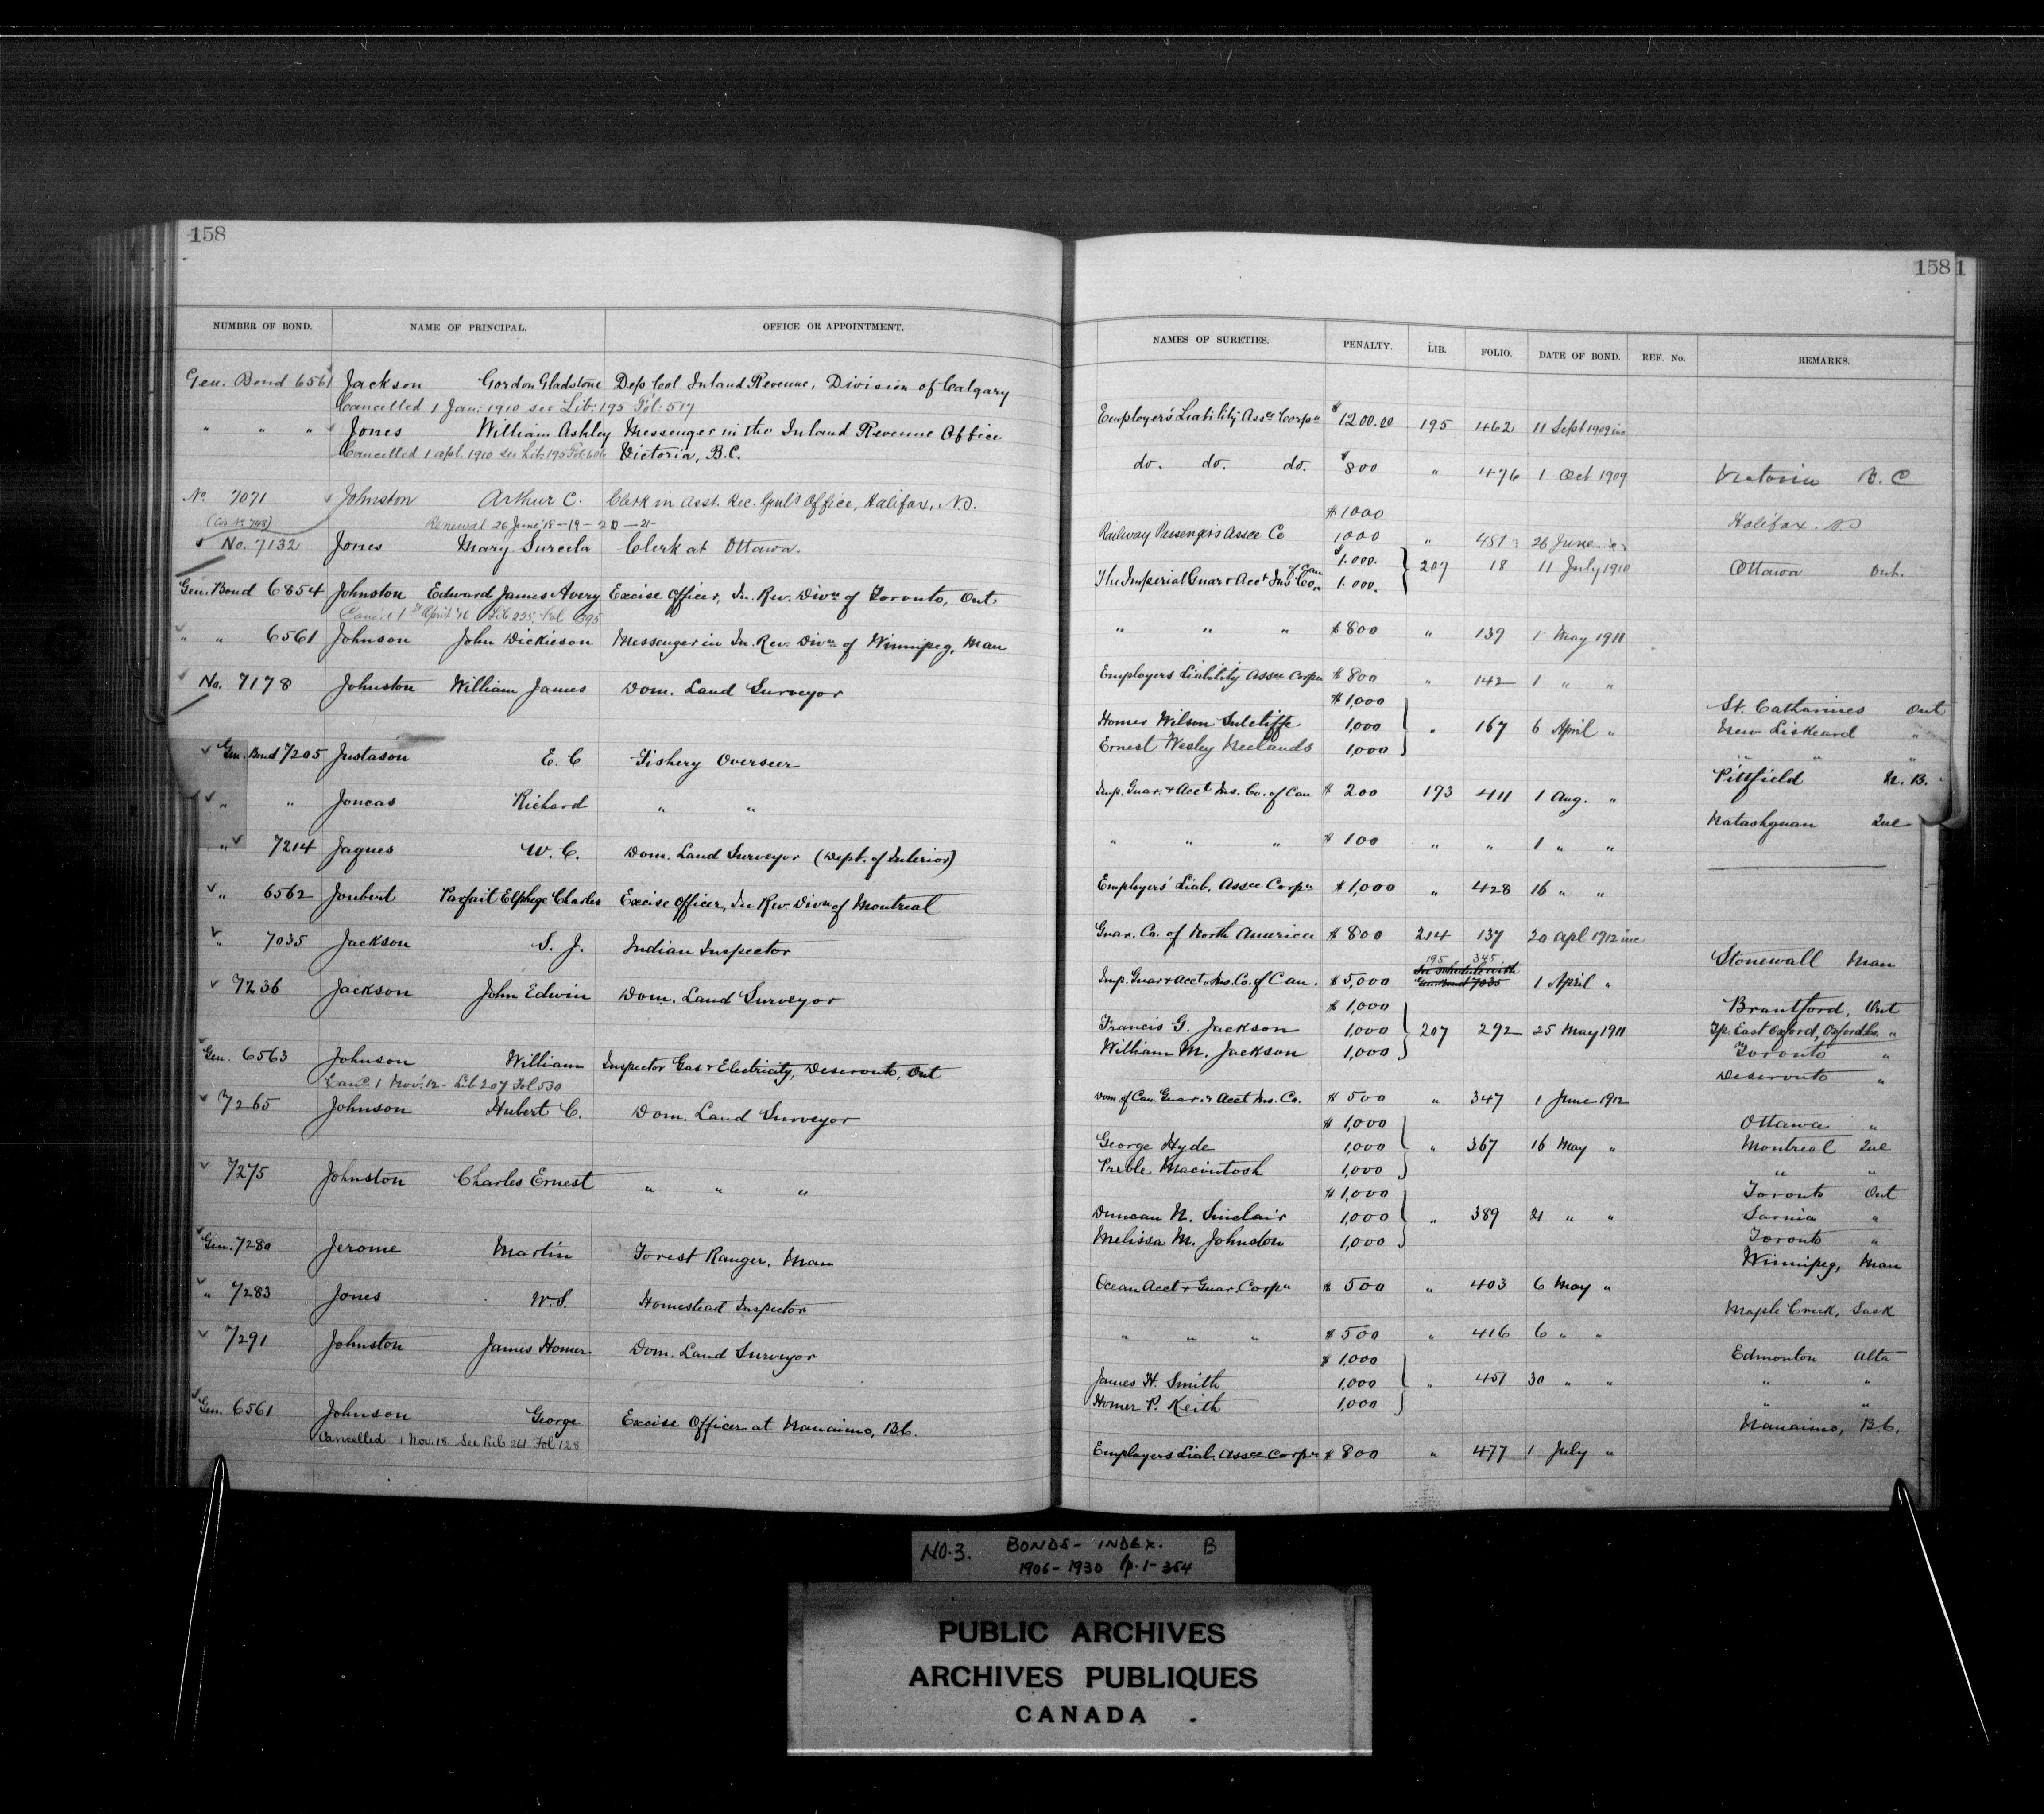 158
NUMBER OF BOND. NAME OF PRINCIPAL. OFFICE OR APPOINTMENT.
Gen. Bond 6561 Jackson Gordon Gladstone Dep Col Inland Revenue, Division of Calgary
Cancelled 1 Jan: 1910 see Lib: 195 Fol: 517
" " " Jones William Ashley Messenger in the Inland Revenue Office
Cancelled 1 apl. 1910 see Lib 195 Fol 606 Victoria, B.C.
No. 7071 Johnston Arthur C. Clerk in Asst. Rec. Genl's Office, Halifax, N.S.
Renewal 26 June '18-19-20-21-
No. 7132 Jones Mary Clerk at Ottawa.
Gen. Bond 6854 Johnston Edward James Avery Excise Officer, In. Rev. Divn of Toronto, Ont
Canc'd 1st April '16 Lib 225. Fol 395
" " 6561 Johnson John Dickieson Messenger in In. Rev. Divn of Winnipeg, Man
No. 7178 Johnston William James Dom. Land Surveyor
Gen. Bond 7205 Justason E. C Fishery Overseer
" " Joncas Richard " "
" 7214 Jaques W. C. Dom. Land Surveyor (Dept. of Interior)
" 6562 Joubert Parfait Elphege Charles Excise Officer, In Rev. Divn of Montreal
" 7035 Jackson S. J. Indian Inspector
7236 Jackson John Edwin Dom. Land Surveyor
Gen. 6563 Johnson William Inspector Gas & Electricity, Deseronto, Ont
Canc. 1 Nov. 12 - Lib 207 Fol 530
7265 Johnson Hubert C. Dom. Land Surveyor
7275 Johnston Charles Ernest " " "
Gen. 7280 Jerome Martin Forest Ranger, Man
" 7283 Jones W. S. Homestead Inspector
7291 Johnston James Homer Dom. Land Surveyor
Gen. 6561 Johnson George Excise Officer at Nanaimo, B.C.
Cancelled 1 Nov. 18 See Lib 261 Fol 128
158 1
NAMES OF SURETIES. PENALTY. LIB. FOLIO. DATE OF BOND. REF. No. REMARKS.
Employers' Liability Assce Corpn $1200.00 195 462 11 Sept 1909 inc
do. do. do. $800 " 476 1 Oct 1909 Victoria B. C
$1000 Halifax N.S
Railway Passengers Assce Co 1000 " 481 26 June
$1.000. Ottawa Ont.
The Imperial Guar & Acct Ins Co of Can 1.000. 207 18 11 July 1910
" " " $800 " 139 1 May 1911
Employers Liability Assce Corpn $800 " 142 1 " "
$1,000 St. Catharines Ont
Homer Wilson Sutcliffe 1,000 " 167 6 April " New Liskeard "
Ernest Wesley Neelands 1,000 " " "
Imp. Guar. & Acct Ins. Co. of Can $200 193 411 1 Aug. " Pittfield N. B.
" " " $100 " " 1 " " Natashquan Que
Employers' Liab. Assce Corpn $1,000 " 428 16 " "
Guar. Co. of North America $800 214 137 20 apl 1912 inc
195 345
Imp. Guar & Acct. Ins. Co. of Can. $5,000 See Schedule with Gen Bond 7035 1 April " Stonewall Man
$1,000 Brantford, Ont
Francis G. Jackson 1,000 207 292 25 May 1911 Tp. East Oxford, Oxford Co. "
William M. Jackson 1,000 Toronto "
Dom. of Can. Guar. & Acct Ins. Co. $500 " 347 1 June 1912 Deseronto "
$1,000 Ottawa "
George Hyde 1,000 " 367 16 May " Montreal Que
Preble Macintosh 1,000 " "
$1,000 Toronto Ont
Duncan N. Sinclair 1,000 " 389 21 " " Sarnia "
Melissa M. Johnston 1,000 Toronto "
Ocean Acct & Guar. Corpn $500 " 403 6 May " Winnipeg, Man
" " " $500 " 416 6 " " Maple Creek, Sask
$1,000 Edmonton Alta
James H. Smith 1,000 " 451 30 " " " "
Homer P. Keith 1,000 " "
Employers Liab. Assce Corpn $800 " 477 1 July " Nanaimo, B.C.
NO. 3. BONDS - INDEX. B
1906 - 1930 p. 1 - 354
PUBLIC ARCHIVES
ARCHIVES PUBLIQUES
CANADA